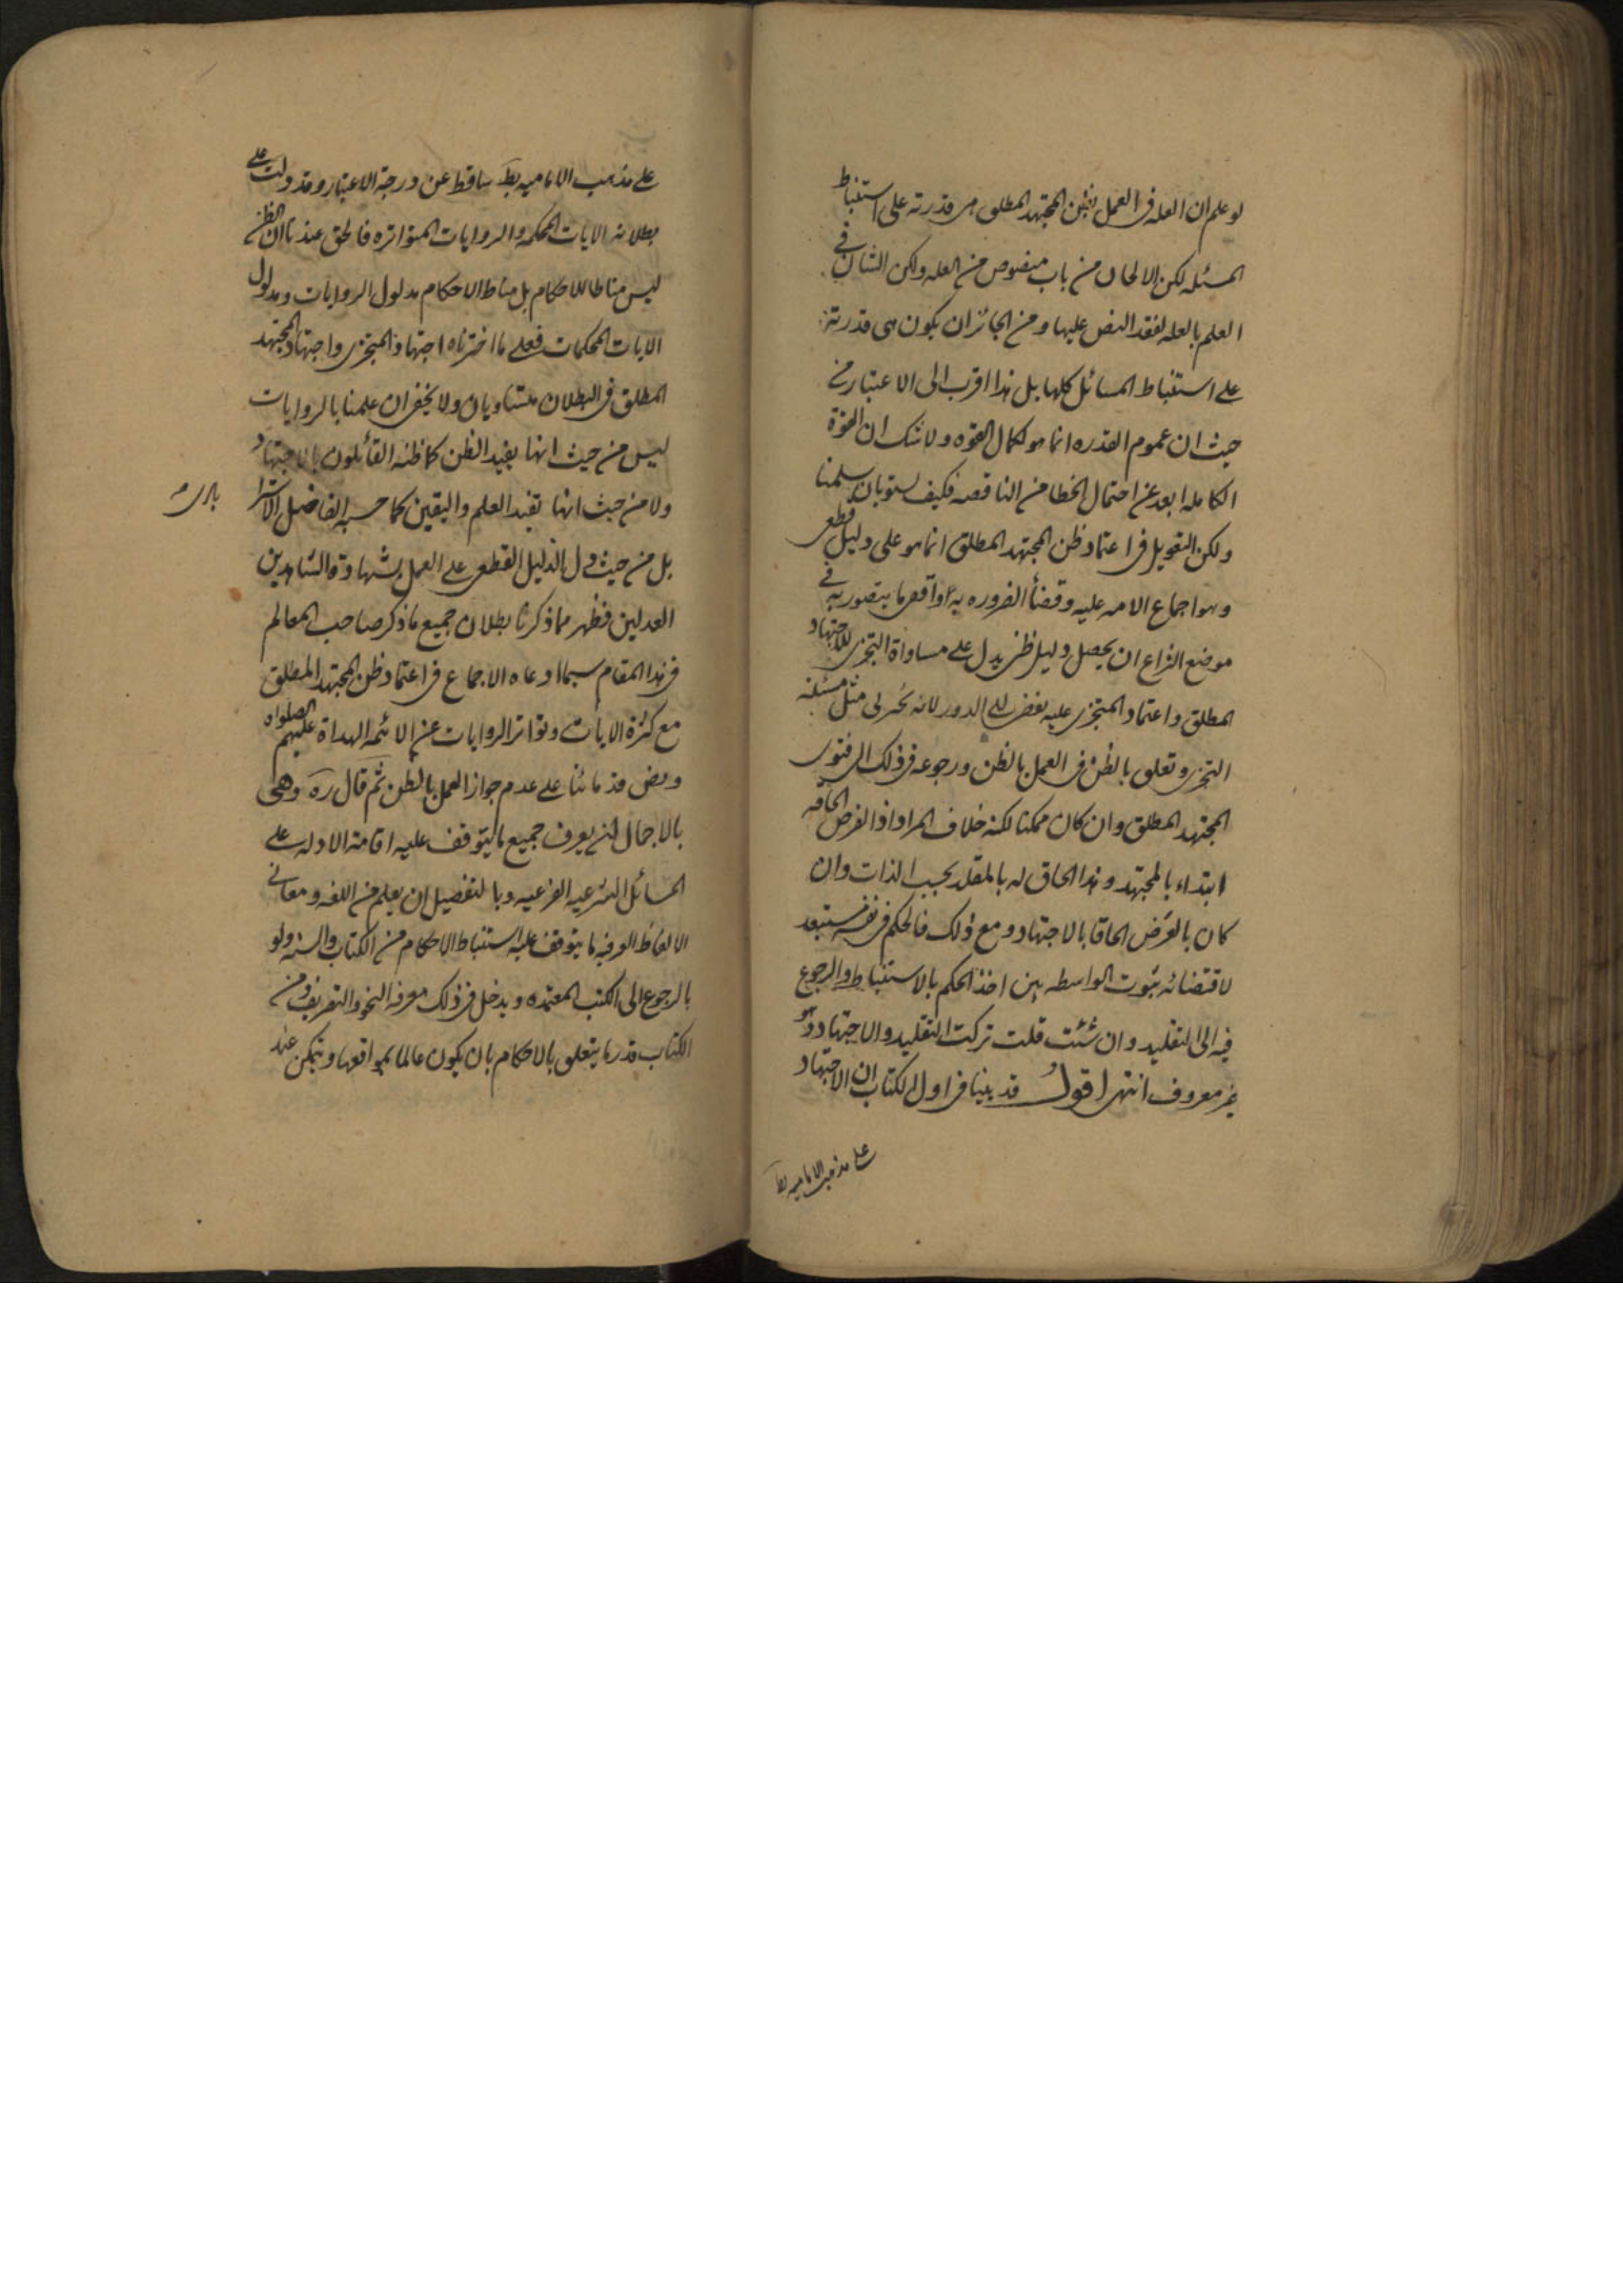 لو علم ان العله فى العمل بظن المجتهد المطلق هى قدرته على استنباط
المسئله لكن الالحاق من باب منصوص من العله ولكن الشان فى
العلم بالعله لفقد النص عليها ومن الجائز ان يكون هى قدرته
على استنباط المسائل كلها بل هذا اقرب الى الاعتبار من
حيث ان عموم القدره انما هو لكمال القوه ولا شك ان القوة
الكامله ابعد عن احتمال الخطا من الناقصه فكيف يستويان سلمنا
ولكن التعويل فى اعتماد ظن المجتهد المطلق انما هو على دليل قطعى
وهو اجماع الامه عليه وقضاء الضروره به واقصى ما يتصور به فى
موضع النزاع ان يحصل دليل ظنى يدل على مساواة التجزى للاجتهاد
المطلق واعتماد المتجزى عليه يفضى الى الدور لانه تجزى مثل مسئله
التجزى وتعلق بالظن فى العمل بالظن ورجوعه فى ذلك الى فتوى
المجتهد المطلق وان كان ممكنا لكنه خلاف المراد اذ الفرض الحاقه
ابتداء بالمجتهد وهذا الحاق له بالمقلد بحسب الذات وان
كان بالعرض الحاقا بالاجتهاد ومع ذلك فالحكم فى نفسه مستبعد
لاقتضائه ثبوت الواسطه بين اخذ الحكم بالاستنباط والرجوع
فيه الى التقليد وان شئت قلت تركت التقليد والاجتهاد وهو
غير معروف انتهى اقول قد بينا فى اول الكتاب ان الاجتهاد
على مذهب الاماميه بط
على مذهب الاماميه بط ساقط عن درجة الاعتبار وقد دلت على
بطلانه الايات المحكمه والروايات المتواتره فالحق عندنا ان الظن
ليس مناطا للاحكام بل مناط الاحكام مدلول الروايات ومدلول
الايات المحكمات فعلى ما اخترناه اجتهاد المتجزى واجتهاد المجتهد
المطلق فى البطلان متساويان ولا يخفى ان علمنا بالروايات
ليس من حيث انها يفيد الظن كما ظنه القائلون بالاجتهاد
ولا من حيث انها تفيد العلم واليقين كما حسبه الفاضل الاسترا
بادى
بل من حيث دل الدليل القطعى على العمل بشهادة الشاهدين
العدلين فظهر مما ذكرنا بطلان جميع ما ذكر صاحب المعالم
فى هذا المقام سيما ادعاه الاجماع فى اعتماد ظن المجتهد المطلق
مع كثرة الايات وتواتر الروايات عن الائمه الهداة عليهم الصلواه
ونص قدمائنا على عدم جواز العمل بالظن ثم قال ره وهى
بالاجمال ان يعرف جميع ما يتوقف عليه اقامة الادله على
المسائل الشرعيه الفرعيه وبالتفصيل ان يعلم من اللغه ومعانى
الالفاظ العرفيه ما يتوقف عليه استنباط الاحكام من الكتاب والسنه ولو
بالرجوع الى الكتب المعتمده ويدخل فى ذلك معرفه النحو والتصريف ومن
الكتاب قدر ما يتعلق بالاحكام بان يكون عالما بمواقعها ويتمكن عند